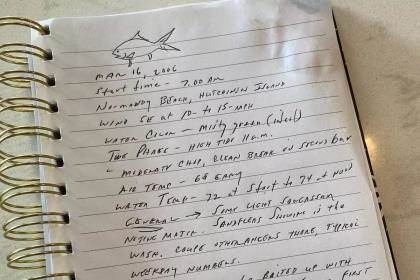 MAR 16, 2006
Start time - 7:00 AM
Normandy Beach, Hutchinson Island
WIND SE AT 10- to 15-MPH
WATER COLOR - Misty green
Tide Phase - HIGH TIDE 11 a.m.
- MODERATE CHOP, CLEAN BREAK ON SECOND BAR
AIR TEMP - 68 EARLY
WATER TEMP - 72 at start to 74 at noon
GENERAL → SOME LIGHT SARGASSUM
NOTING MAJOR. SANDFLEAS SHOWING IN THE
WASH. COUPLE OTHER ANGLERS THERE, TYPICAL
WEEKDAY NUMBERS.
BAITED UP WITH
FIRST